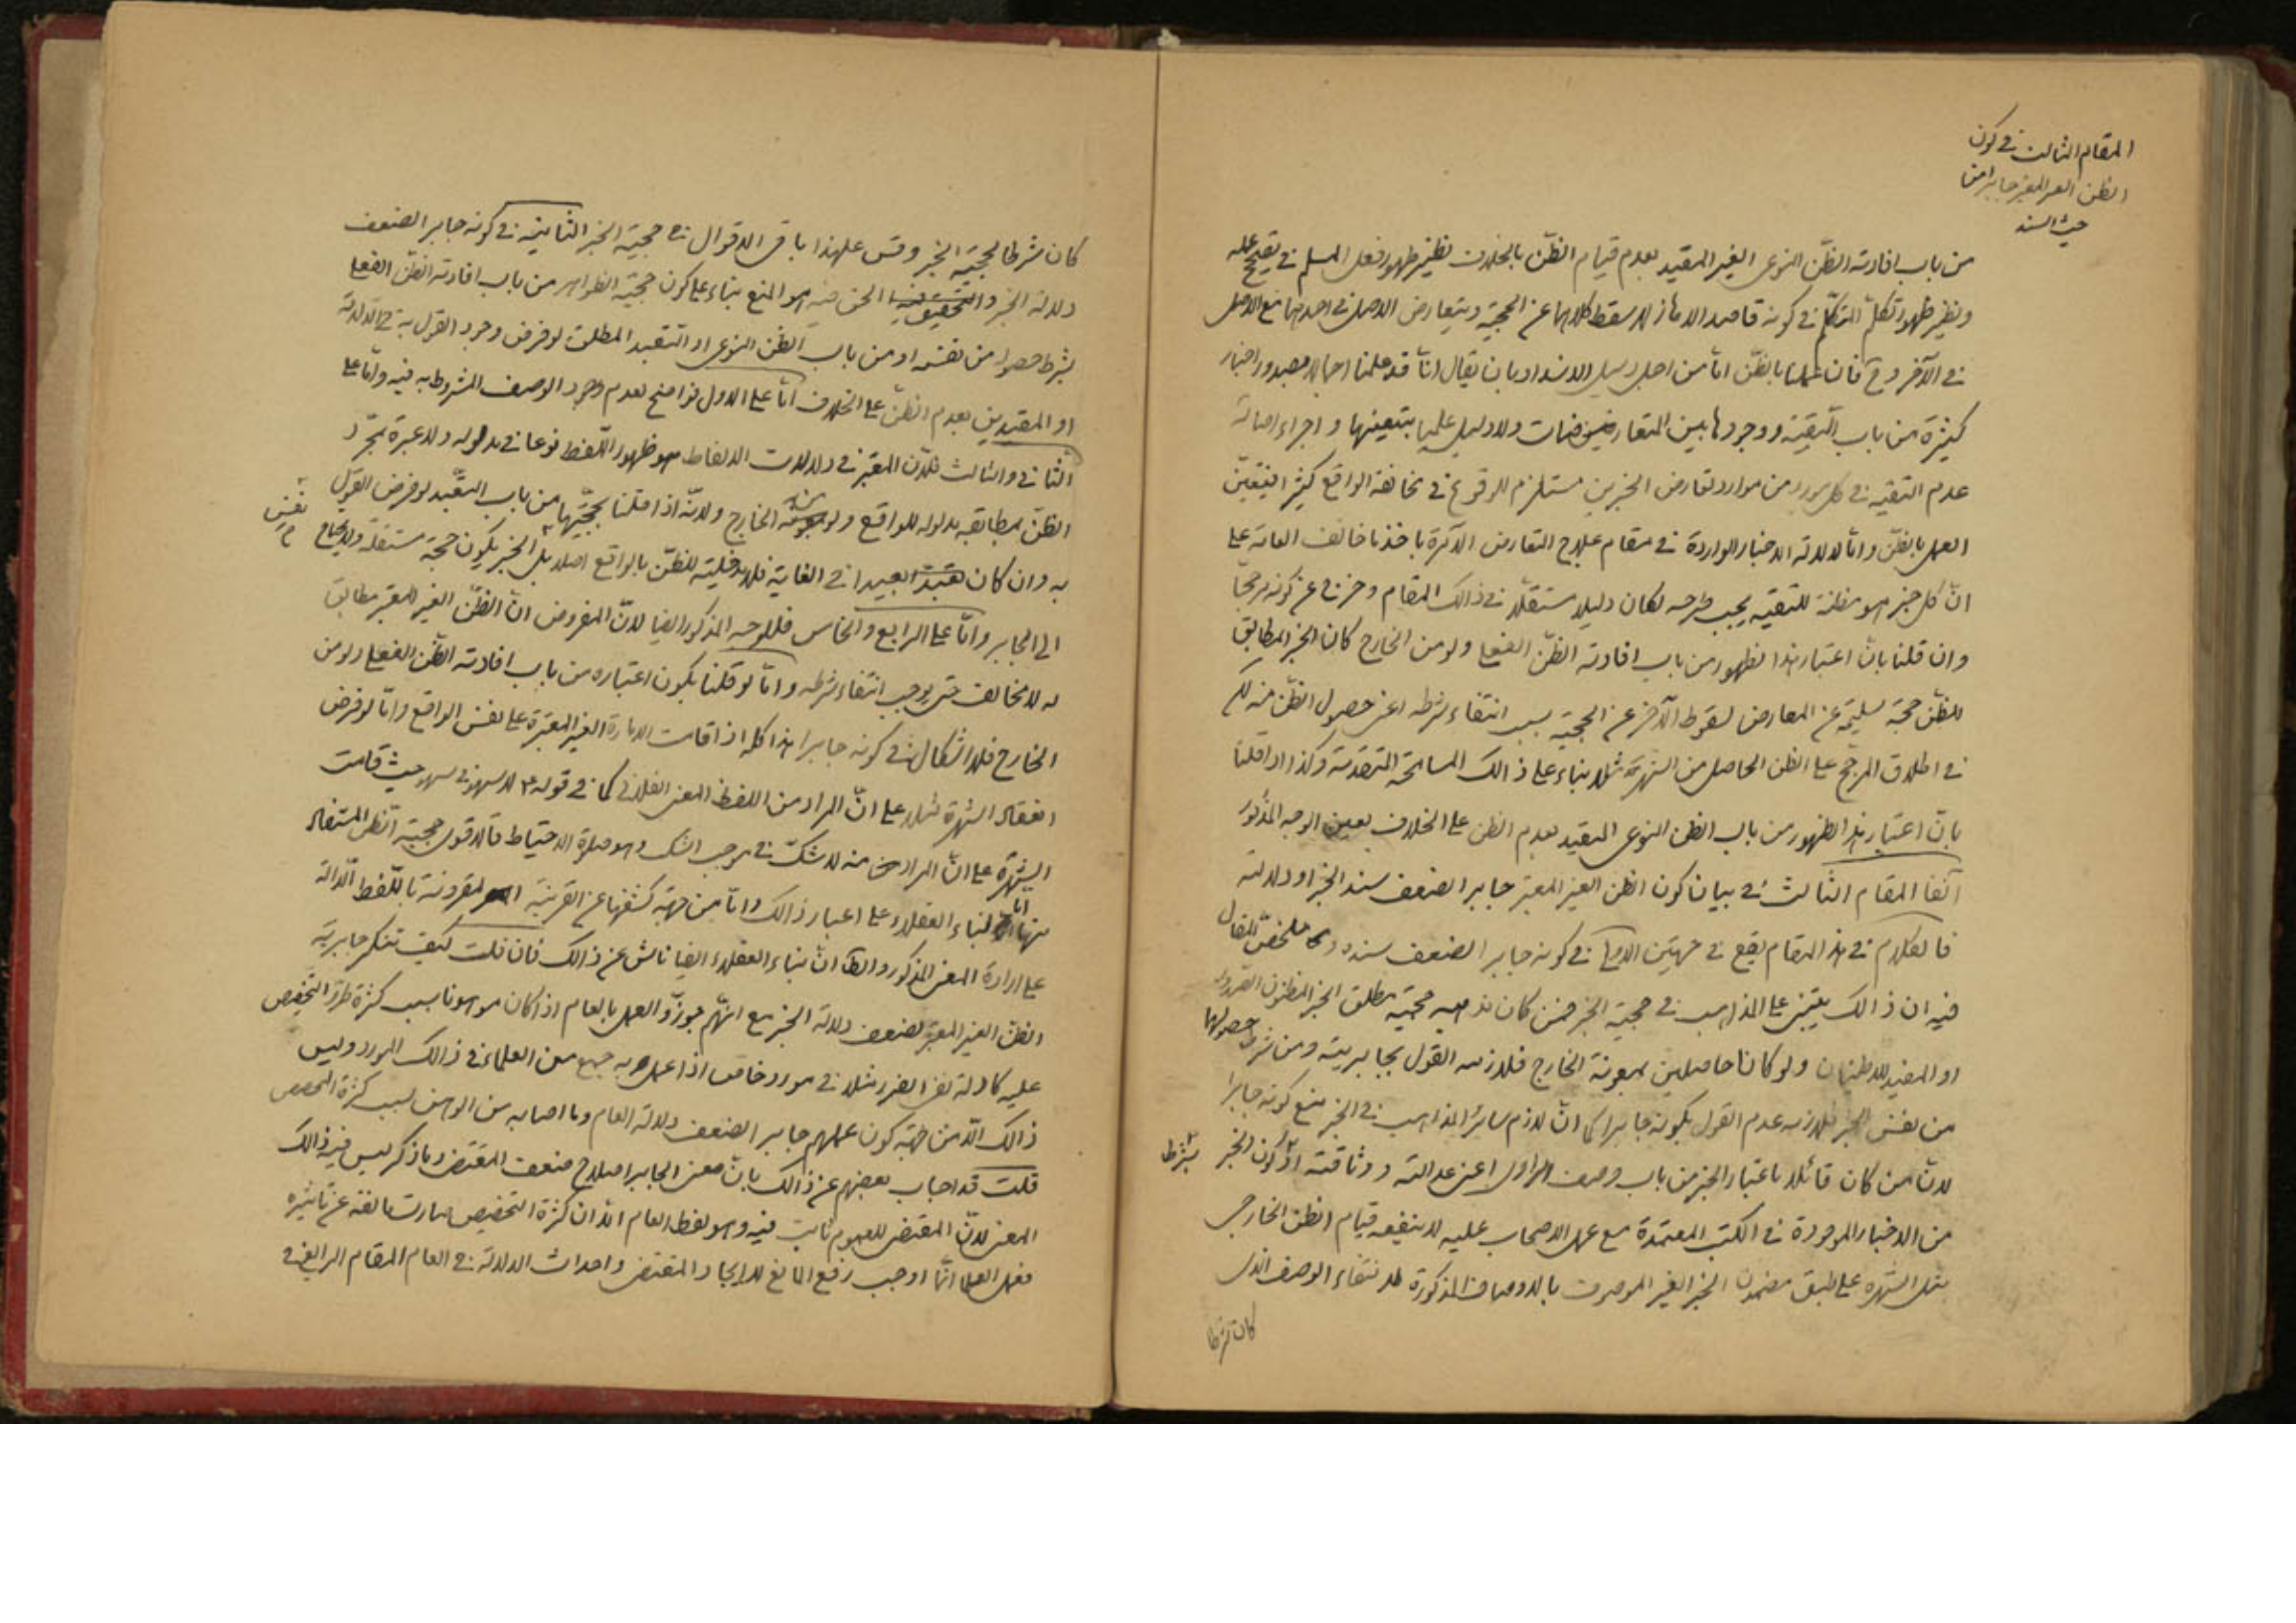 المقام الثالث في كون
الظن الغير المعتبر جابرا من
حيث السند
من باب افادته الظنّ النوعى الغير المقيد بعدم قيام الظنّ بالخلاف نظير ظهور فعل المسلم في
ونظير ظهور تكلّم المتكلّم في كونه قاصدا لسقط كلاهما عن الحجّية ويتعارض الاصل في احدهما مع الاصل
في الآخر وح فان عملنا بالظنّ امّا من اجل دليل الانسداد بان يقال انّا قد علمنا اجمالا بصدور اخبار
كثيرة من باب التّقيّة ووجودها بين المتعارضات ولا دليل علميا بتعينها و اجراء اصالة
عدم التقيّة في كل مورد من موارد تعارض الخبرين مستلزم للوقوع في مخالفة الواقع كثيرا فيتعيّن
العمل بالظنّ وامّا لدلالة الاخبار الواردة في مقام علاج التعارض الآمرة باخذ ما خالف العامّة على
انّ كل خبر هو مظنّة للتقيّة يجب طرحه لكان دليلا مستقلّا في ذالك المقام وخرج عن كونه مرجّحا
وان قلنا بانّ اعتبار هذا الظهور من باب افادته الظنّ الفعلى ولو من الخارج كان الخبر المطابق
للظنّ حجّة سليمة عن المعارض لسقوط الآخر عن الحجّية بسبب انتفاء شرطه اعنى حصول الظنّ منه
في اطلاق المرجّح على الظن الحاصل من الشهرة مثلا بناء على ذالك المسامحة المتقدمة وكذا اذا قلنا
بانّ اعتبار هذا الظهور من باب الظن النوعى المقيد بعدم الظن على الخلاف بعين الوجه المذكور
آنفا المقام الثالث في بيان كون الظن الغير المعتبر جابرا لضعف سند الخبر او دلالته
فالكلام في هذا المقام يقع في جهتين الاولى في كونه جابرا لضعف سنده وملخص المقال
فيه ان ذالك يبتنى على المذاهب في حجيّة الخبر فمن كان مذهبه حجيّة مطلق الخبر المظنون الصدور
او المفيد للاطمينان ولو كانا حاصلين بمعونة الخارج فلازمه القول بجابريته ومن شرط حصولهما
من نفس الخبر فلازمه عدم القول بكونه جابرا كما انّ لازم سائر المذاهب في الخبر منع كونه جابرا
لانّ من كان قائلا باعتبار الخبر من باب وصف الراوى اعنى عدالته ووثاقته او بشرط كون الخبر
من الاخبار الموجودة في الكتب المعتمدة مع عمل الاصحاب عليه لا ينفعه قيام الظن الخارجى
مثل الشهرة على طبق مضمون الخبر الغير الموصوف بالاوصاف المذكورة لانتفاء الوصف الذى
كان شرطا
كان شرطا لحجيّة الخبر وقس على هذا باقى الاقوال في حجيّة الخبر الثانية في كونه جابرا لضعف
دلالة الخبر والحق فيه هو المنع بناء على كون حجيّة الظواهر من باب افادته الظنّ الفعلى
بشرط حصوله من نفسه او من باب الظن النوعى او التعبد المطلق لو فرض وجود القول به في الدلالة
او المقيدين بعدم الظنّ على الخلاف امّا على الاول فواضح لعدم وجود الوصف المشروط به فيه وامّا على
الثانى والثالث فلانّ المعتبر في دلالات الالفاظ هو ظهور اللّفظ نوعا في مدلوله ولا عبرة بمجرّد
الظنّ بمطابقة مدلوله للواقع ولو من الخارج ولانّه اذا قلنا بحجّيتها من باب التعبّد لو فرض القول
به وان كان بعيدا في الغاية فلا مدخلية للظنّ بالواقع اصلا بل نفس الخبر يكون حجّة مستقلّة ولا يحتاج
الى الجابر وامّا على الرابع والخامس فللوجه المذكور ايضا لانّ المفروض انّ الظنّ الغير المعتبر مطابق
له لا مخالف حتى يوجب انتفاء شرطه وامّا لو قلنا بكون اعتباره من باب افادته الظنّ الفعلى ولو من
الخارج فلا اشكال في كونه جابرا هذا كله اذا قامت الامارة الغير المعتبرة على نفس الواقع وامّا لو فرض
انعقاد الشهرة مثلا على انّ المراد من اللفظ المعنى الفلانى كما في قوله ع لا سهو في سهو حيث قامت
الشهرة على انّ المراد منه لا شكّ في موجب الشك وهو صلوة الاحتياط فالاقوى حجيّة الظن المستفاد
منها امّا لبناء العقلاء على اعتبار ذالك وامّا من جهة كشفها عن القرينة المقرونة باللّفظ الدّالة
على ارادة المعنى المذكور والظ انّ بناء العقلاء ايضا ناش عن ذالك فان قلت كيف تنكر جابريّة
الظن الغير المعتبر لضعف دلالة الخبر مع انّهم جوزّوا العمل بالعام اذا كان موهونا بسبب كثرة طروّ التّخصيص
عليه كادلة نفى الضرر مثلا في مورد خاص اذا عمل به جمع من العلماء في ذالك المورد وليس
ذالك الّا من جهة كون عملهم جابرا لضعف دلالة العام وما اصابه من الوهن بسبب كثرة المخصص
قلت قد اجاب بعضهم عن ذالك بانّ معنى الجابر اصلاح ضعف المقتضى وما ذكر ليس فيه ذالك
المعنى لانّ المقتضى للعموم ثابت فيه وهو لفظ العام الّا ان كثرة التخصيص صارت مانعة عن تاثيره
فعمل العلماء انّما اوجب رفع المانع لا ايجاد المقتضى واحداث الدلالة في العام المقام الرابع في